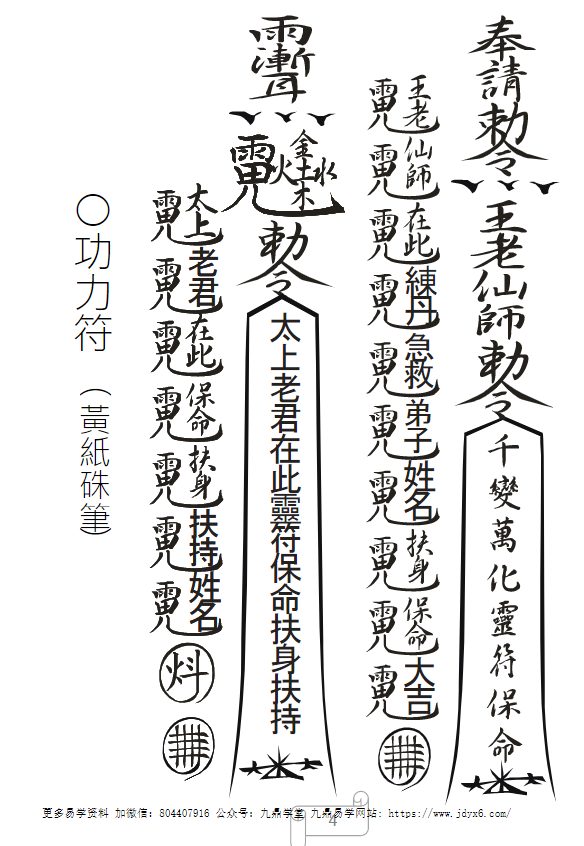 奉請勅令
王老仙師勅令
千變萬化靈符保命
王老
仙師
在此
練丹
急救
弟子
姓名
扶身
保命
大吉
金木水火土
勅令
太上老君在此靈符保命扶身扶持
太上
老君
在此
保命
扶身
扶持
姓名
○功力符(黃紙硃筆)
更多易学资料 加微信:804407916 公众号:九鼎学堂 九鼎易学网站: https://www.jdyx6.com/
4